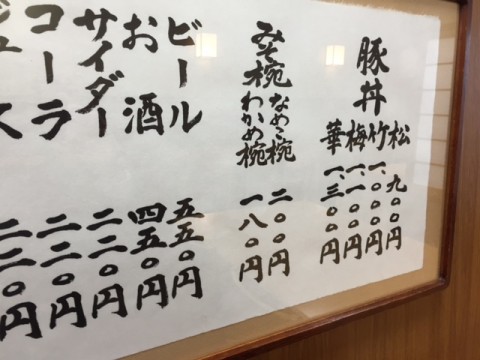 豚丼
松 九〇〇円
竹 一、〇〇〇円
梅 一、一〇〇円
華 一、三〇〇円
みそ椀
なめこ椀 二〇〇円
わかめ椀 一八〇円
ビール 五五〇円
お酒 四五〇円
サイダー 二二〇円
コーラ 二二〇円
二二〇円